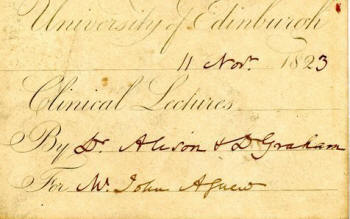 University of Edinburgh
11 Novr. 1823
Clinical Lectures
By Dr. Alison & Dr Graham
For Mr. John Agnew